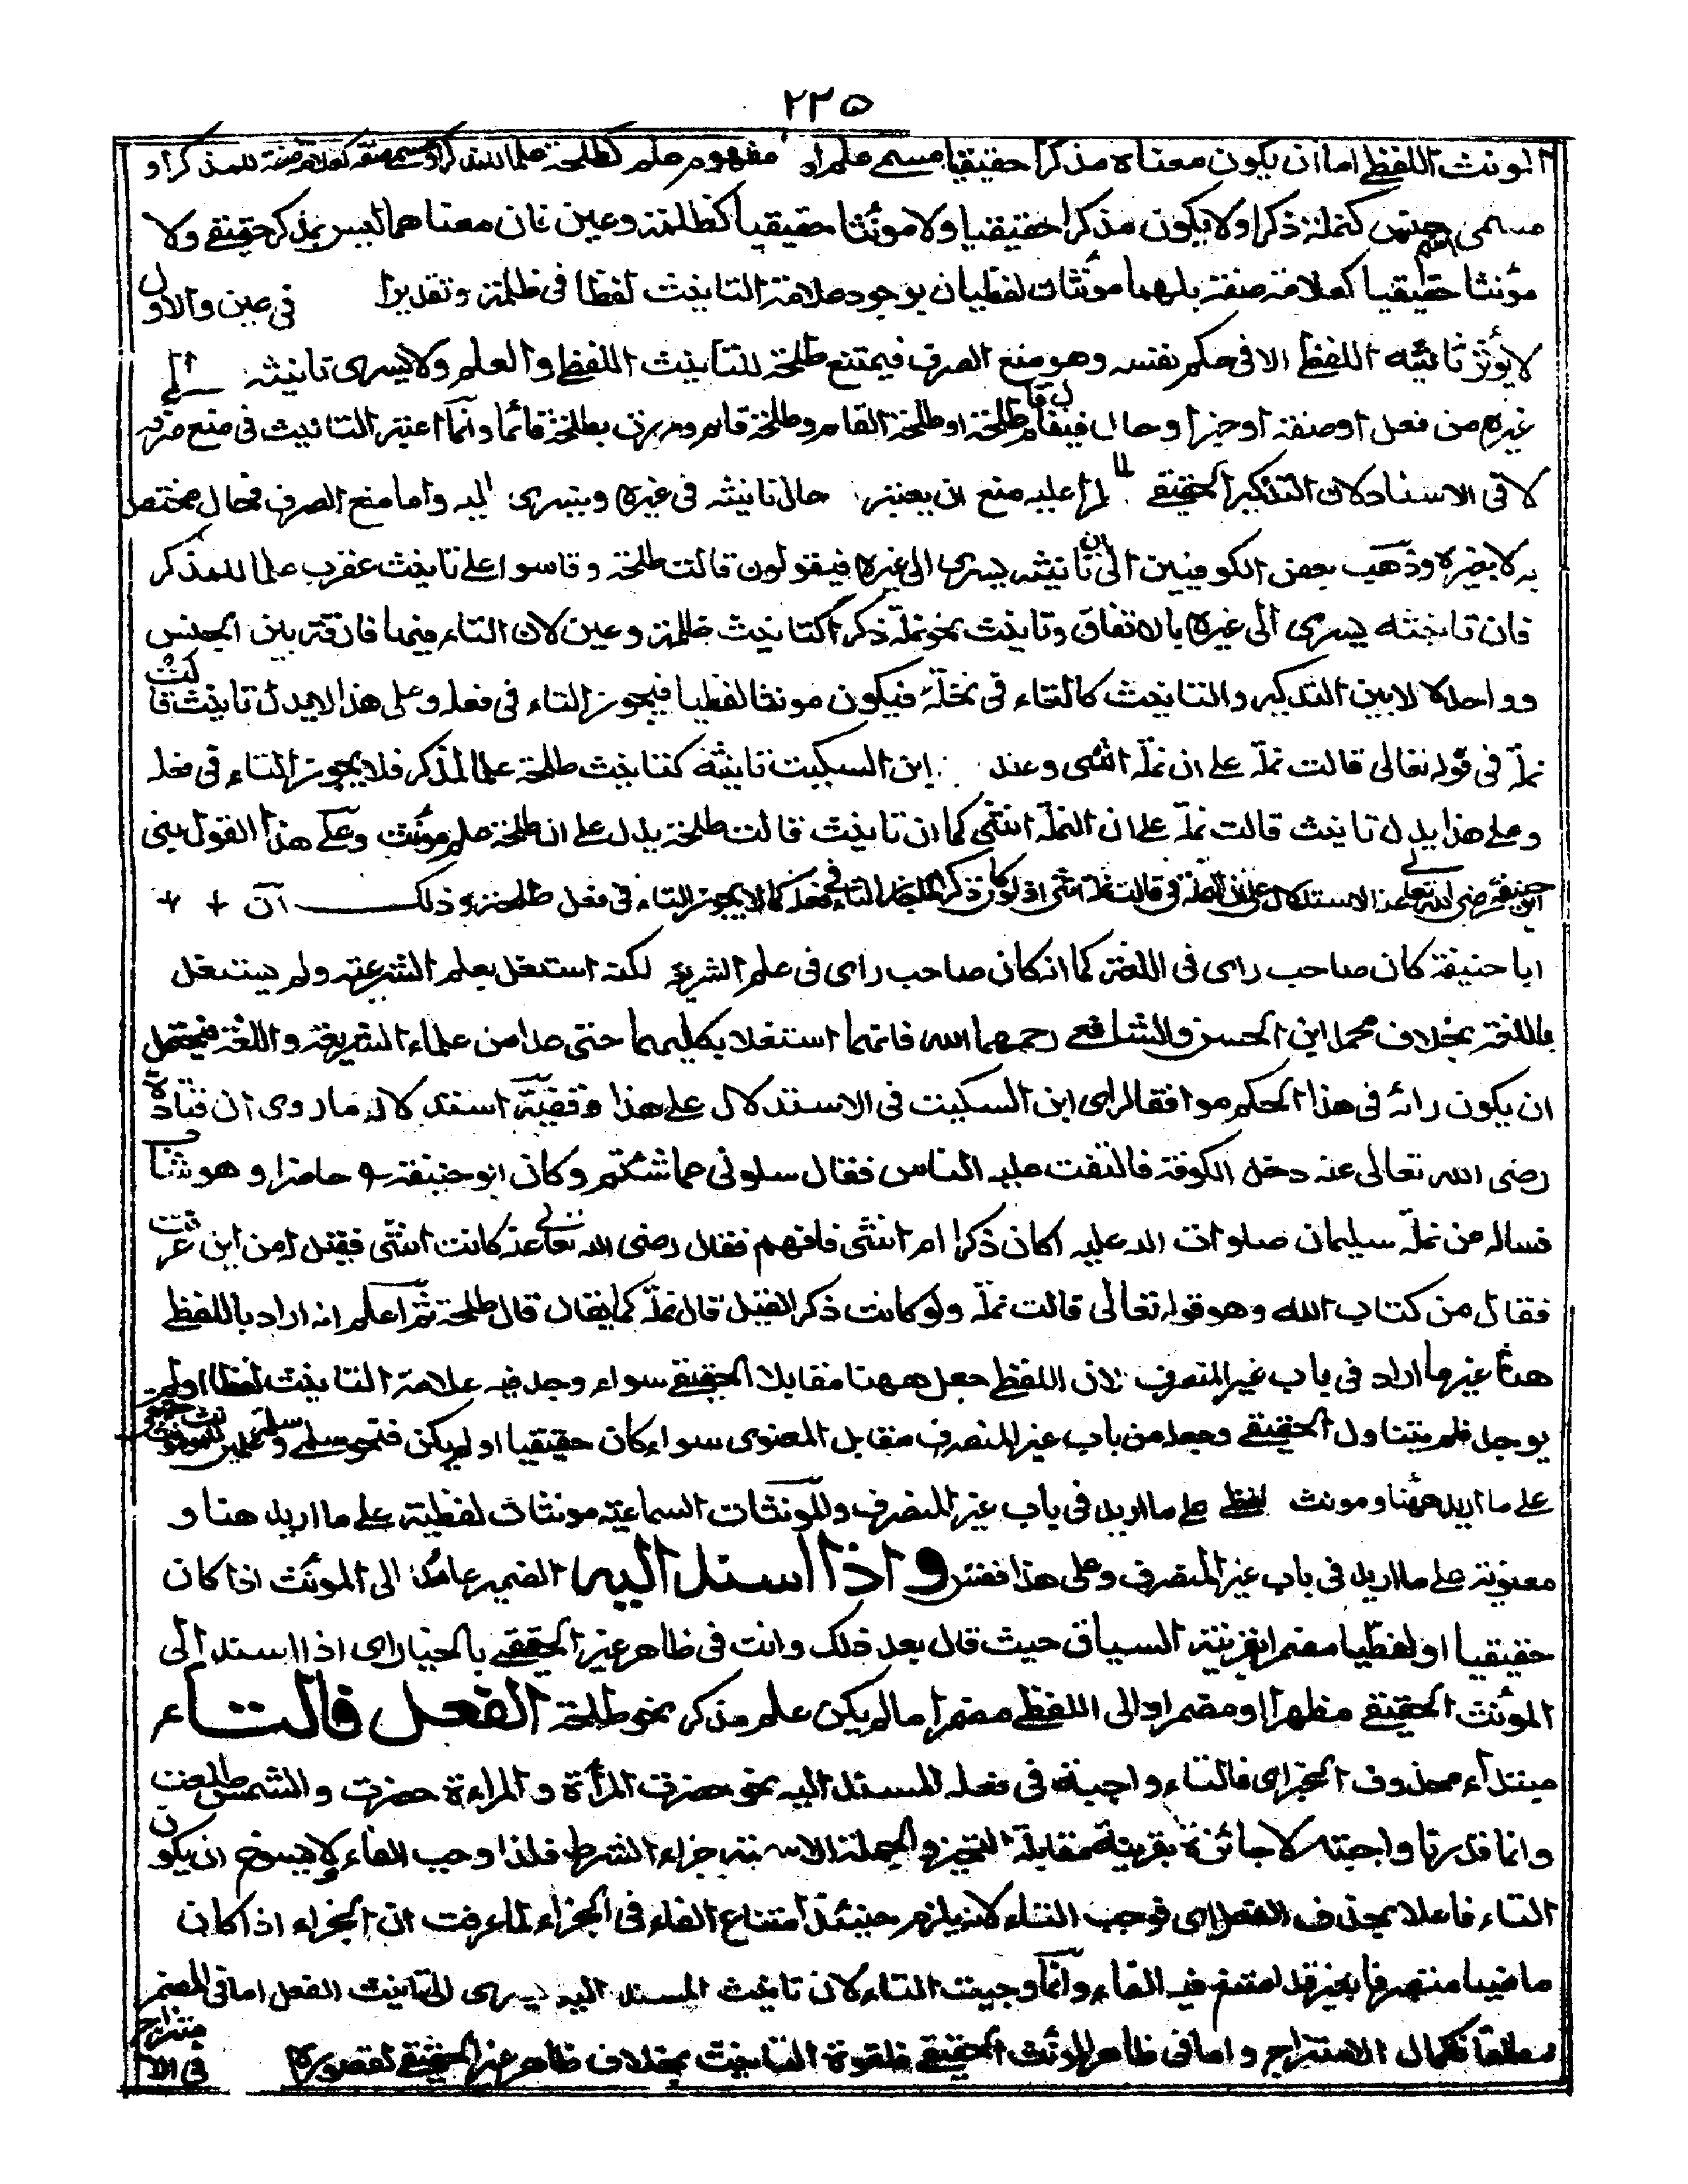 ٢٢٥
المونث اللفظے اما ان يكون معناه مذكرا حقيقيا مسمے علم او مفهوم علم كطلحة علما للمذكر او مسمے صفة كعلامة صفة للمذكر او
مسمى اسم جنس كنملة ذكرا ولا يكون مذكرا حقيقيا ولا مونثا حقيقيا كظلمة وعين فان معناهما ليس بمذكر حقيقے ولا
مؤنثا حقيقيا كعلامة صفة بل هما مؤنثان لفظيان بوجود علامة التانيث لفظا فى ظلمة وتقديرا فى عين والاول
لا يؤثر تانيثه اللفظے الا فى حكم نفسه وهو منع الصرف فيمتنع طلحة للتانيث اللفظے والعلم ولا يسرى تانيثه الے
غيره من فعل او صفة او خبر او حال فيقال قام طلحة او طلحة القام وطلحة قام ومررت بطلحة قائما وانما اعتبر التانيث فى منع صرفه
لا فى الاسناد لان التذكير الحقيقے لما طرا عليه منع ان يعتبر حال تانيثه فى غيره ويسرى اليه واما منع الصرف فحال مختص
به لا بغيره وذهب بعض الكوفيين الى ان تانيثه يسرى الى غيره فيقولون قالت طلحة وقاسوا على تانيث عقرب علما للمذكر
فان تانيثه يسرى الى غيره بالاتفاق وتانيث نحو نملة ذكرا كتانيث ظلمة وعين لان التاء فيهما فارقة بين الجنس
وواحده لا بين التذكير والتانيث كالتاء فى نخلة فيكون مونثا لفظيا فيجوز التاء فى فعله وعلى هذا لا يدل تانيث قالت
نملة فى قوله تعالى قالت نملة على ان نملة انثى وعند ابن السكيت تانيثه كتانيث طلحة علما لمذكر فلا يجوز التاء فى فعله
وعلى هذا يدل تانيث قالت نملة على ان النملة انثى كما ان تانيث قالت طلحة يدل على ان طلحة علم مونث وعلے هذا القول بنى
ابو حنيفة رضى الله تعالے عنه الاستدلال على ان النملة فى قالت نملة انثى اذ لو كان ذكرا لما جاز التاء فى فعله كما لا يجوز التاء فى فعل طلحة وذلك ان
ابا حنيفة كان صاحب راى فى اللغة كما انه كان صاحب راى فى علم الشريعة لكنه استغل بعلم الشرعية ولم يستغل
باللغة بخلاف محمد ابن الحسن والشافعے رحمهما الله فانهما استغلا بكليهما حتى عدا من علماء الشريعة واللغة فيحتمل
ان يكون رائه فى هذا الحكم موافقا لراى ابن السكيت فى الاستدلال على هذا وقضية استدلاله ما روى ان قتادة
رضى الله تعالى عنه دخل الكوفة فالتفت عليه الناس فقال سلونى عما شئتم وكان ابو حنيفة حاضرا وهو شاب
فساله من نملة سليمان صلوات الله عليه اكان ذكرا ام انثى فافهم فقال رضى الله تعالے عنه كانت انثى فقيل له من اين عرفت
فقال من كتاب الله وهو قوله تعالى قالت نملة ولو كانت ذكرا لقيل قال نملة كما يقال قال طلحة ثم اعلم انه اراد باللفظے
هنا غير ما اراد فى باب غير المنصرف لان اللفظے جعل ههنا مقابلا الحقيقے سواء وجد فيه علامة التانيث لفظا او لم
يوجد فلم يتناول الحقيقے وجعله من باب غير المنصرف مقابل المعنوى سواء كان حقيقيا او لم يكن فنحو سلمے وسلمة علمين للمونث مونث حقيقے
على ما اريد ههنا ومونث لفظے علے ما اريد فى باب غير المنصرف وللمؤنثات السماعية مونثات لفظية على ما اريد هنا و
معنوية على ما اريد فى باب غير المنصرف وعلى هذا فقس واذا اسند اليه الضمير عائد الى المؤنث اذا كان
حقيقيا او لفظيا مضمرا بقرينة السياق حيث قال بعد ذلك وانت فى ظاهر غير الحقيقے بالخيار اى اذا اسند الى
المؤنث الحقيقے مظهرا او مضمرا والى اللفظے مضمرا ما لم يكن علم مذكر نحو طلحة الفعل فالتاء
مبتداء محذوف الخبر اى فالتاء واجبة فى فعله المسند اليه نحو حضرت المرأة والمراءة حضرت والشمس طلعت
وانما قدرنا واجبة لا جائزة بقرينة مقابلة التخيير والجملة الاسمية جزاء الشرط فلذا وجب الفاء ولا يسوغ ان يكون
التاء فاعلا بحذف الفعل اى فوجب التاء لانه يلزم حينئذ امتناع الفاء فى الجزاء لما عرفت ان الجزاء اذا كان
ماضيا متصرفا بغير قد امتنع فيه الفاء وانما وجبت التاء لان تانيث المسند اليه يسرى الى تانيث الفعل اما فى المضمر
مطلقا فلكمال الامتزاج واما فى ظاهر المؤنث الحقيقے فلقوة التانيث بخلاف ظاهر غير الحقيقے لقصوره فى الامتزاج